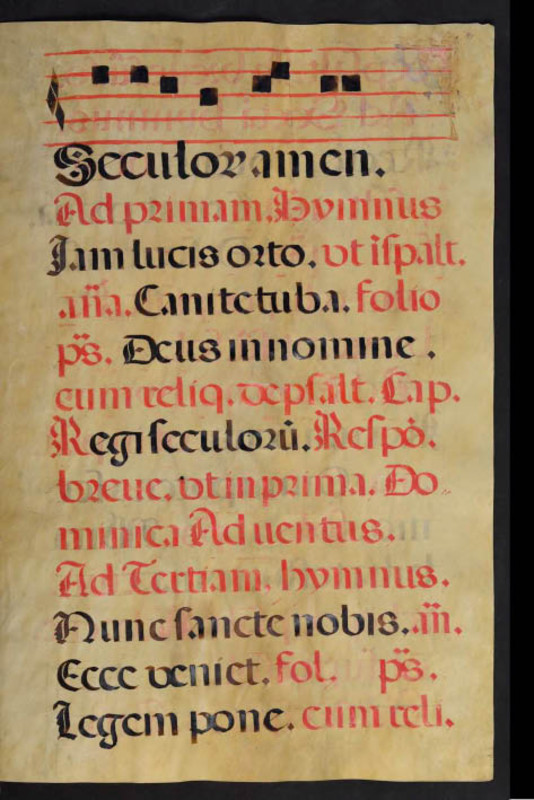 Seculor. amen.
Ad primam. Hymnus
Jam lucis orto. vt i spalt.
.añа. Canite tuba. folio
ps̃. Deus in nomine.
cum reliq. de psalt. Cap.
Regi seculorũ. Respõ.
breue. vt in prima. Do
minica Aduentus.
Ad Tertiam. hymnus.
Nunc sancte nobis. .añ.
Ecce veniet. fol. ps̃.
Legem pone. cum reli.